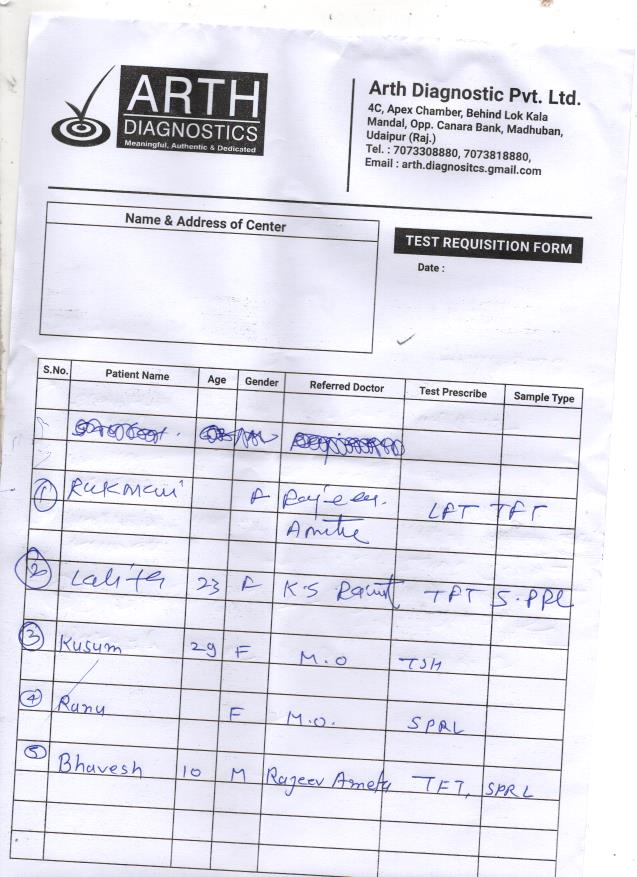 ARTH
DIAGNOSTICS
Meaningful, Authentic & Dedicated
Arth Diagnostic Pvt. Ltd.
4C, Apex Chamber, Behind Lok Kala
Mandal, Opp. Canara Bank, Madhuban,
Udaipur (Raj.)
Tel. : 7073308880, 7073818880,
Email : arth.diagnositcs.gmail.com
Name & Address of Center
TEST REQUISITION FORM
Date :
S.No. Patient Name Age Gender Referred Doctor Test Prescribe Sample Type
1 Rukmani F Rajeev LFT TFT
2 Lalita 23 F K.S TFT S.PRL
3 Kusum 29 F M.O TSH
4 Ranu F M.O. SPRL
5 Bhavesh 10 M Rajeev Ameta TFT, SPRL